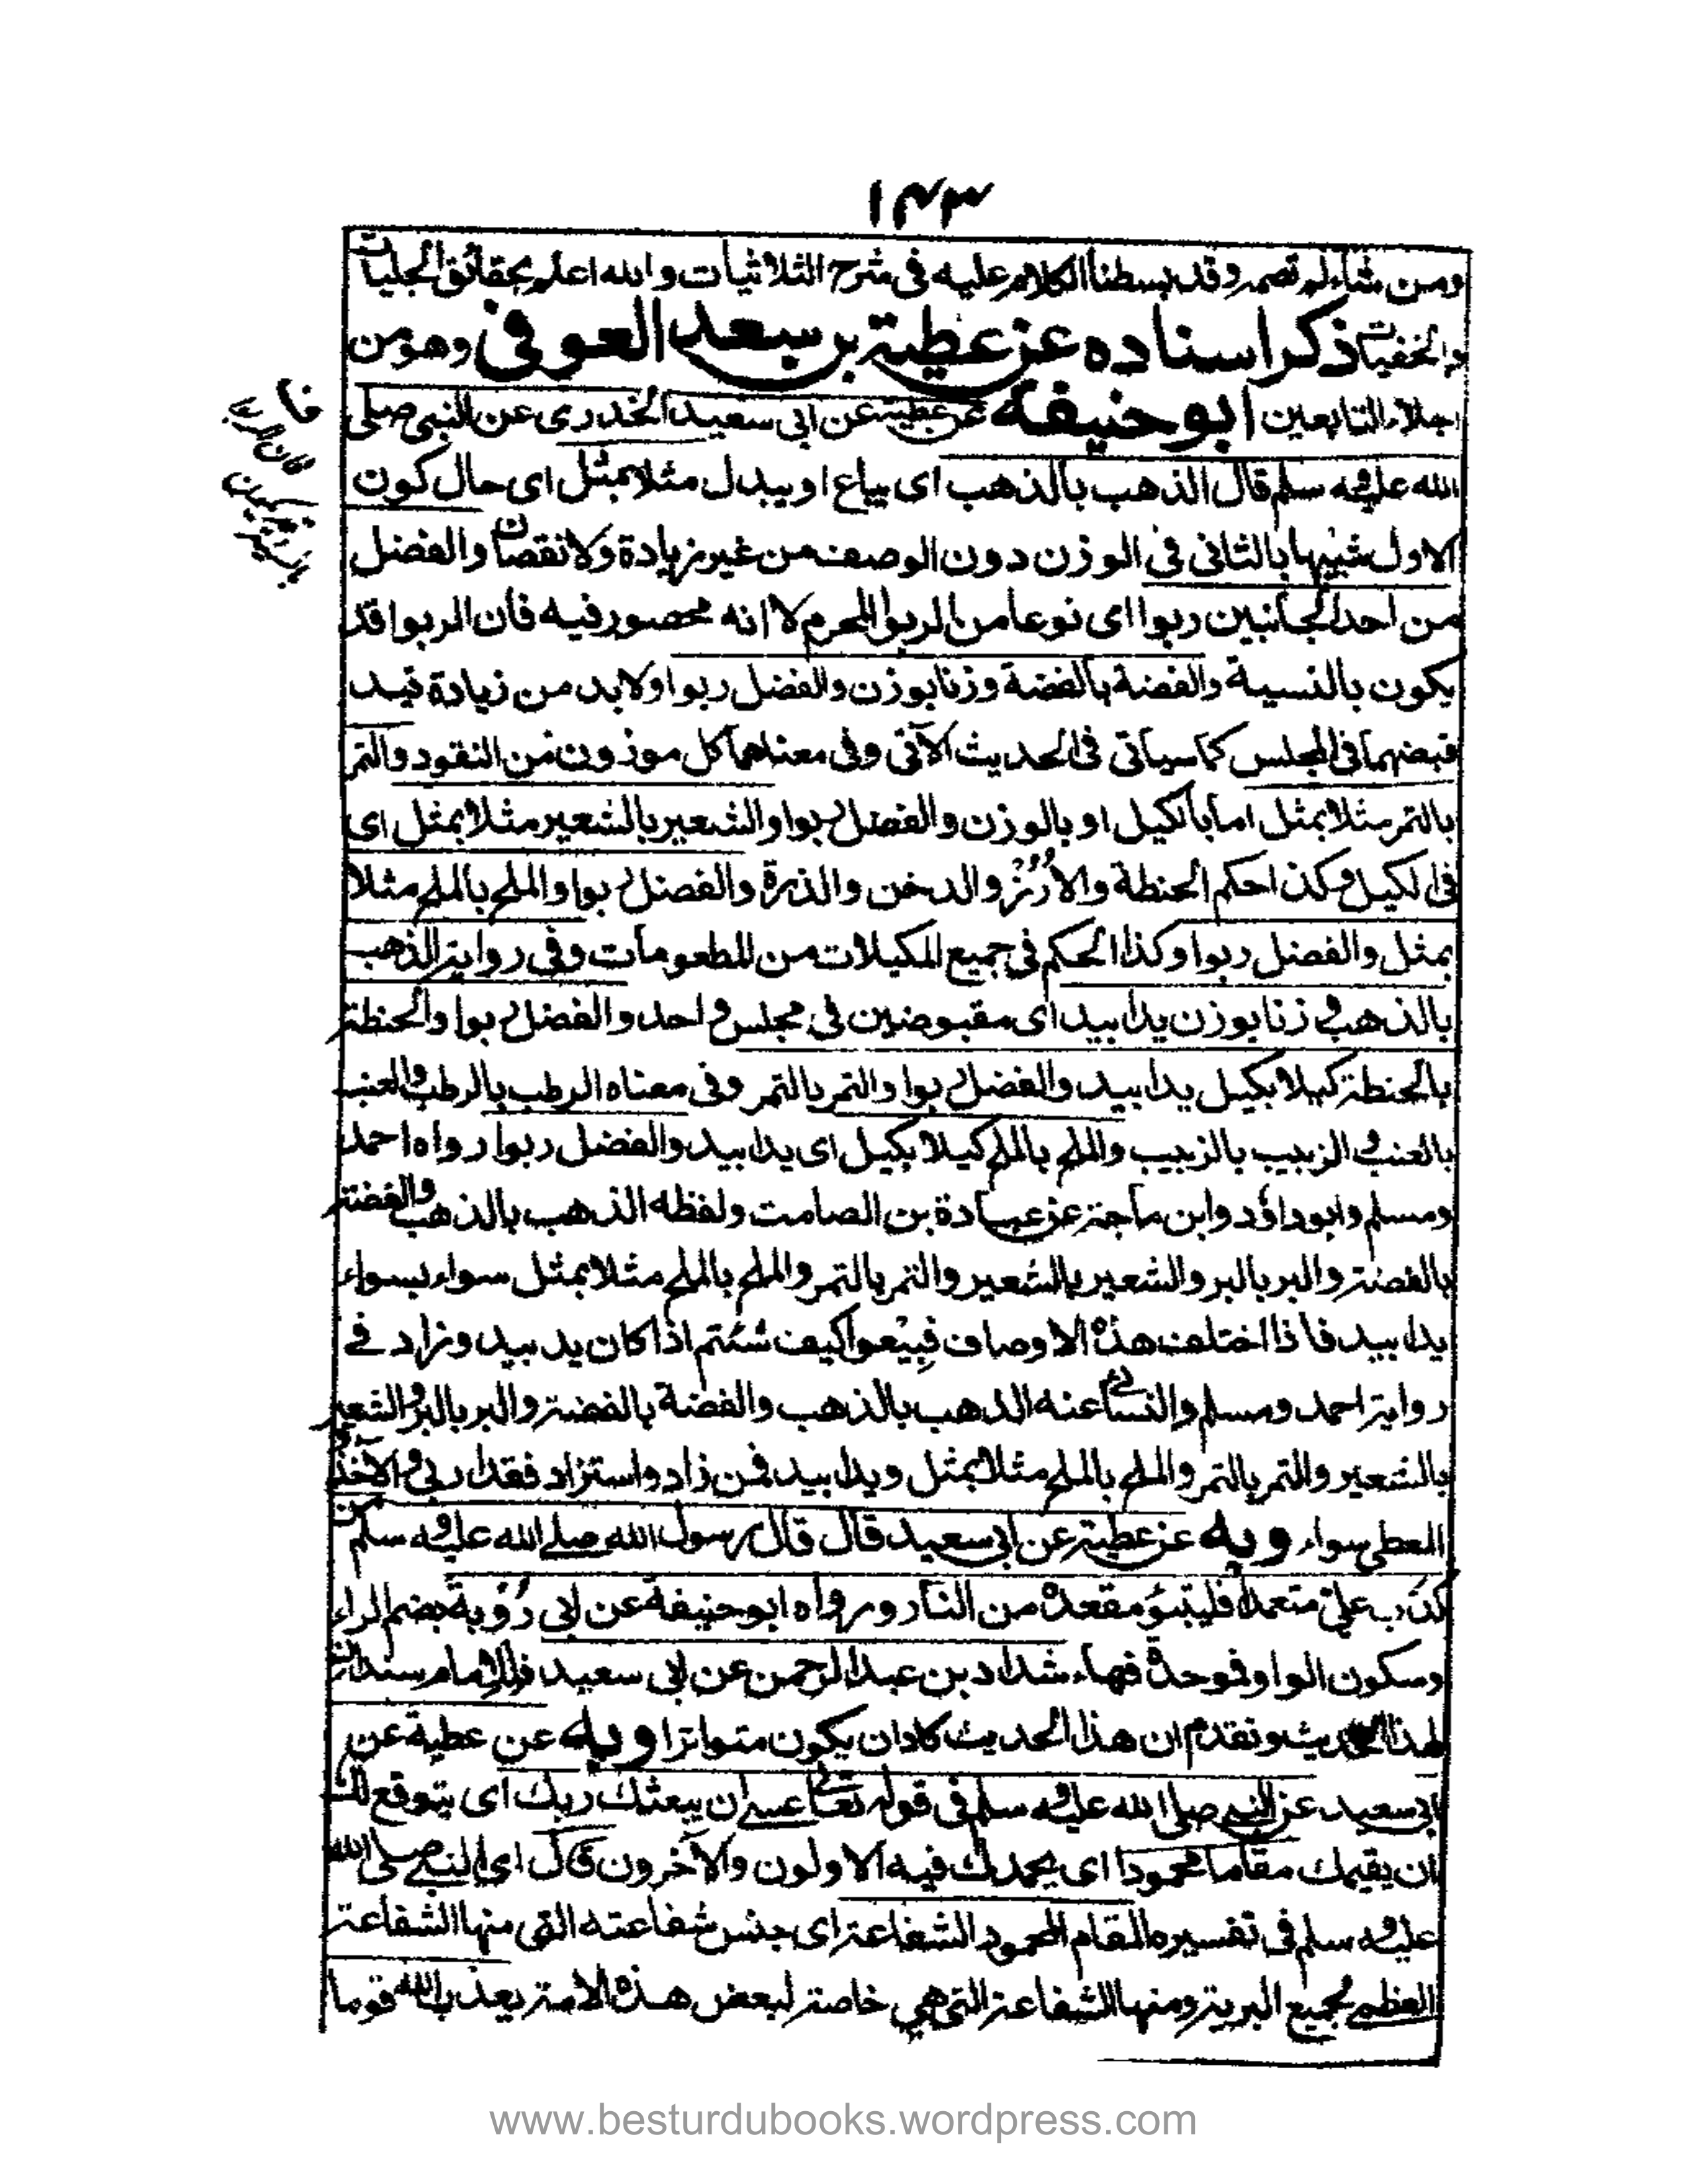 ١٤٣
ومن شاء لم تصم وقد بسطنا الكلام عليه في شرح الثلاثيات والله اعلم بحقائق الجليات
والخفيات ذكر اسناده عن عطية بن سعد العوفي وهو من
اجلاء التابعين ابو حنيفة عن عطية عن ابي سعيد الخدري عن النبي صلى
الله عليه وسلم قال الذهب بالذهب اى يباع او يبدل مثلا بمثل اى حال كون
الاول شبيها بالثاني في الوزن دون الوصف من غير زيادة ولا نقصان والفضل
من احد الجانبين ربوا اى نوعا من الربوا المحرم لا انه محصور فيه فان الربوا قد
يكون بالنسية والفضة بالفضة وزنا بوزن والفضل ربوا ولا بد من زيادة قيد
قبضهما في المجلس كما سياتي في الحديث الآتي وفي معناهما كل موزون من النقود والتمر
بالتمر مثلا بمثل اما بالكيل او بالوزن والفضل ربوا والشعير بالشعير مثلا بمثل اى
في الكيل وكذا حكم الحنطة والأرُزّ والدخن والذرة والفضل ربوا والملح بالملح مثلا
بمثل والفضل ربوا وكذا الحكم في جميع المكيلات من المطعومات وفي رواية الذهب
بالذهب وزنا بوزن يدا بيد اى مقبوضين في مجلس واحد والفضل ربوا والحنطة
بالحنطة كيلا بكيل يدا بيد والفضل ربوا والتمر بالتمر وفي معناه الرطب بالرطب والعنب
بالعنب والزبيب بالزبيب والملح بالملح كيلا بكيل اى يدا بيد والفضل ربوا رواه احمد
ومسلم وابو داؤد وابن ماجة عن عبادة بن الصامت ولفظه الذهب بالذهب والفضة
بالفضة والبر بالبر والشعير بالشعير والتمر بالتمر والملح بالملح مثلا بمثل سواء بسواء
يدا بيد فاذا اختلف هذه الاوصاف فبيعوا كيف شئتم اذا كان يد بيد وزاد في
رواية احمد ومسلم والنسائي عنه الذهب بالذهب والفضة بالفضة والبر بالبر والشعير
بالشعير والتمر بالتمر والملح بالملح مثلا بمثل ويدا بيد فمن زاد واستزاد فقد اربى والآخذ و
المعطي سواء وبه عن عطية عن ابي سعيد قال قال رسول الله صلى الله عليه وسلم من
كذب علي متعمدا فليتبوء مقعده من النار ورواه ابو حنيفة عن ابي رؤبة بضم الراء
وسكون الواو فموحدة فهاء شداد بن عبد الرحمن عن ابي سعيد فللامام سندان
لهذا الحديث وتقدم ان هذا الحديث كاد ان يكون متواترا وبه عن عطية عن
ابي سعيد عن النبي صلى الله عليه وسلم في قوله تعالى عسى ان يبعثك ربك اى يتوقع لك
ان يقيمك مقاما محمودا اى يحمدك فيه الاولون والآخرون قال اى النبي صلى الله
عليه وسلم في تفسيره المقام المحمود الشفاعة اى جنس شفاعته التي منها الشفاعة
العظمى لجميع البرية ومنها الشفاعة التي هي خاصة لبعض هذه الامة يعذب الله قوما
www.besturdubooks.wordpress.com